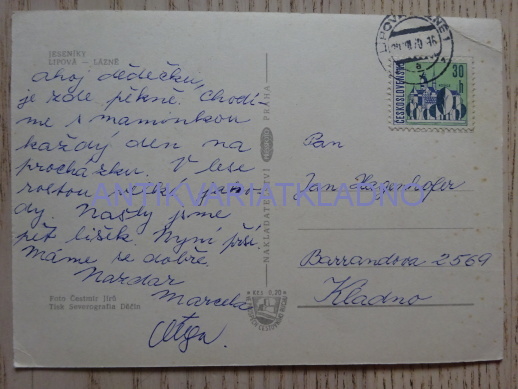 JESENÍKY
LIPOVÁ - LÁZNĚ
Ahoj dědečku,
je zde pěkně. Chodí-
me s maminkou
každý den na
procházku. V lese
rostou velké
dy. Našly jsme
pět lišek. Nyní prší
Máme se dobře.
Nazdar
Marcela
Olga.
Foto Čestmír Jírů
Tisk Severografia Děčín
NAKLADATELSTVÍ PRESSFOTO PRAHA
KčS 0,20
LIPOVÁ LÁZNĚ 1
ČESKOSLOVENSKO
30 h
Pan
Jan Hagenhofer
Barrandova 2569
Kladno
ANTIKVARIATKLADNO